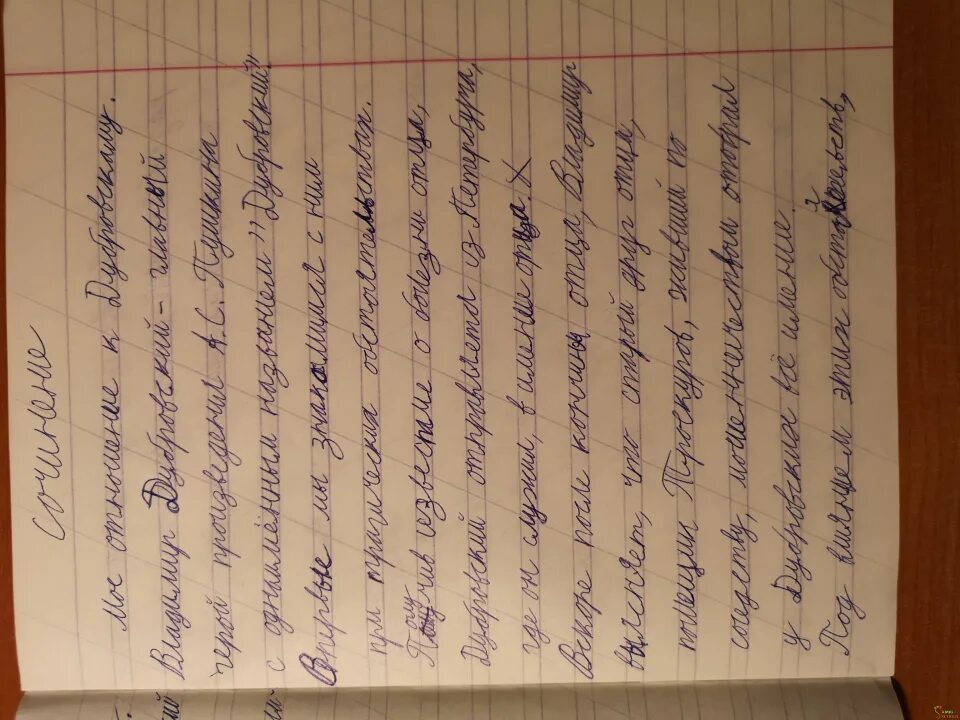 Сочинение
Мое отношение к Дубровскому.
Владимир Дубровский - главный
герой произведения А.С. Пушкина
с одноимённым названием "Дубровский".
Впервые мы знакомимся с ним
при трагических обстоятельствах.
Получив известие о болезни отца,
Дубровский отправляется из Петербурга,
где он служил, в имение отца. X
Вскоре после кончины отца, Владимир
выясняет, что старый друг отца,
помещик Троекуров, живший по
соседству, мошенничеством отобрал
у Дубровских всё имение.
Под влиянием этих обстоятельств,
ский